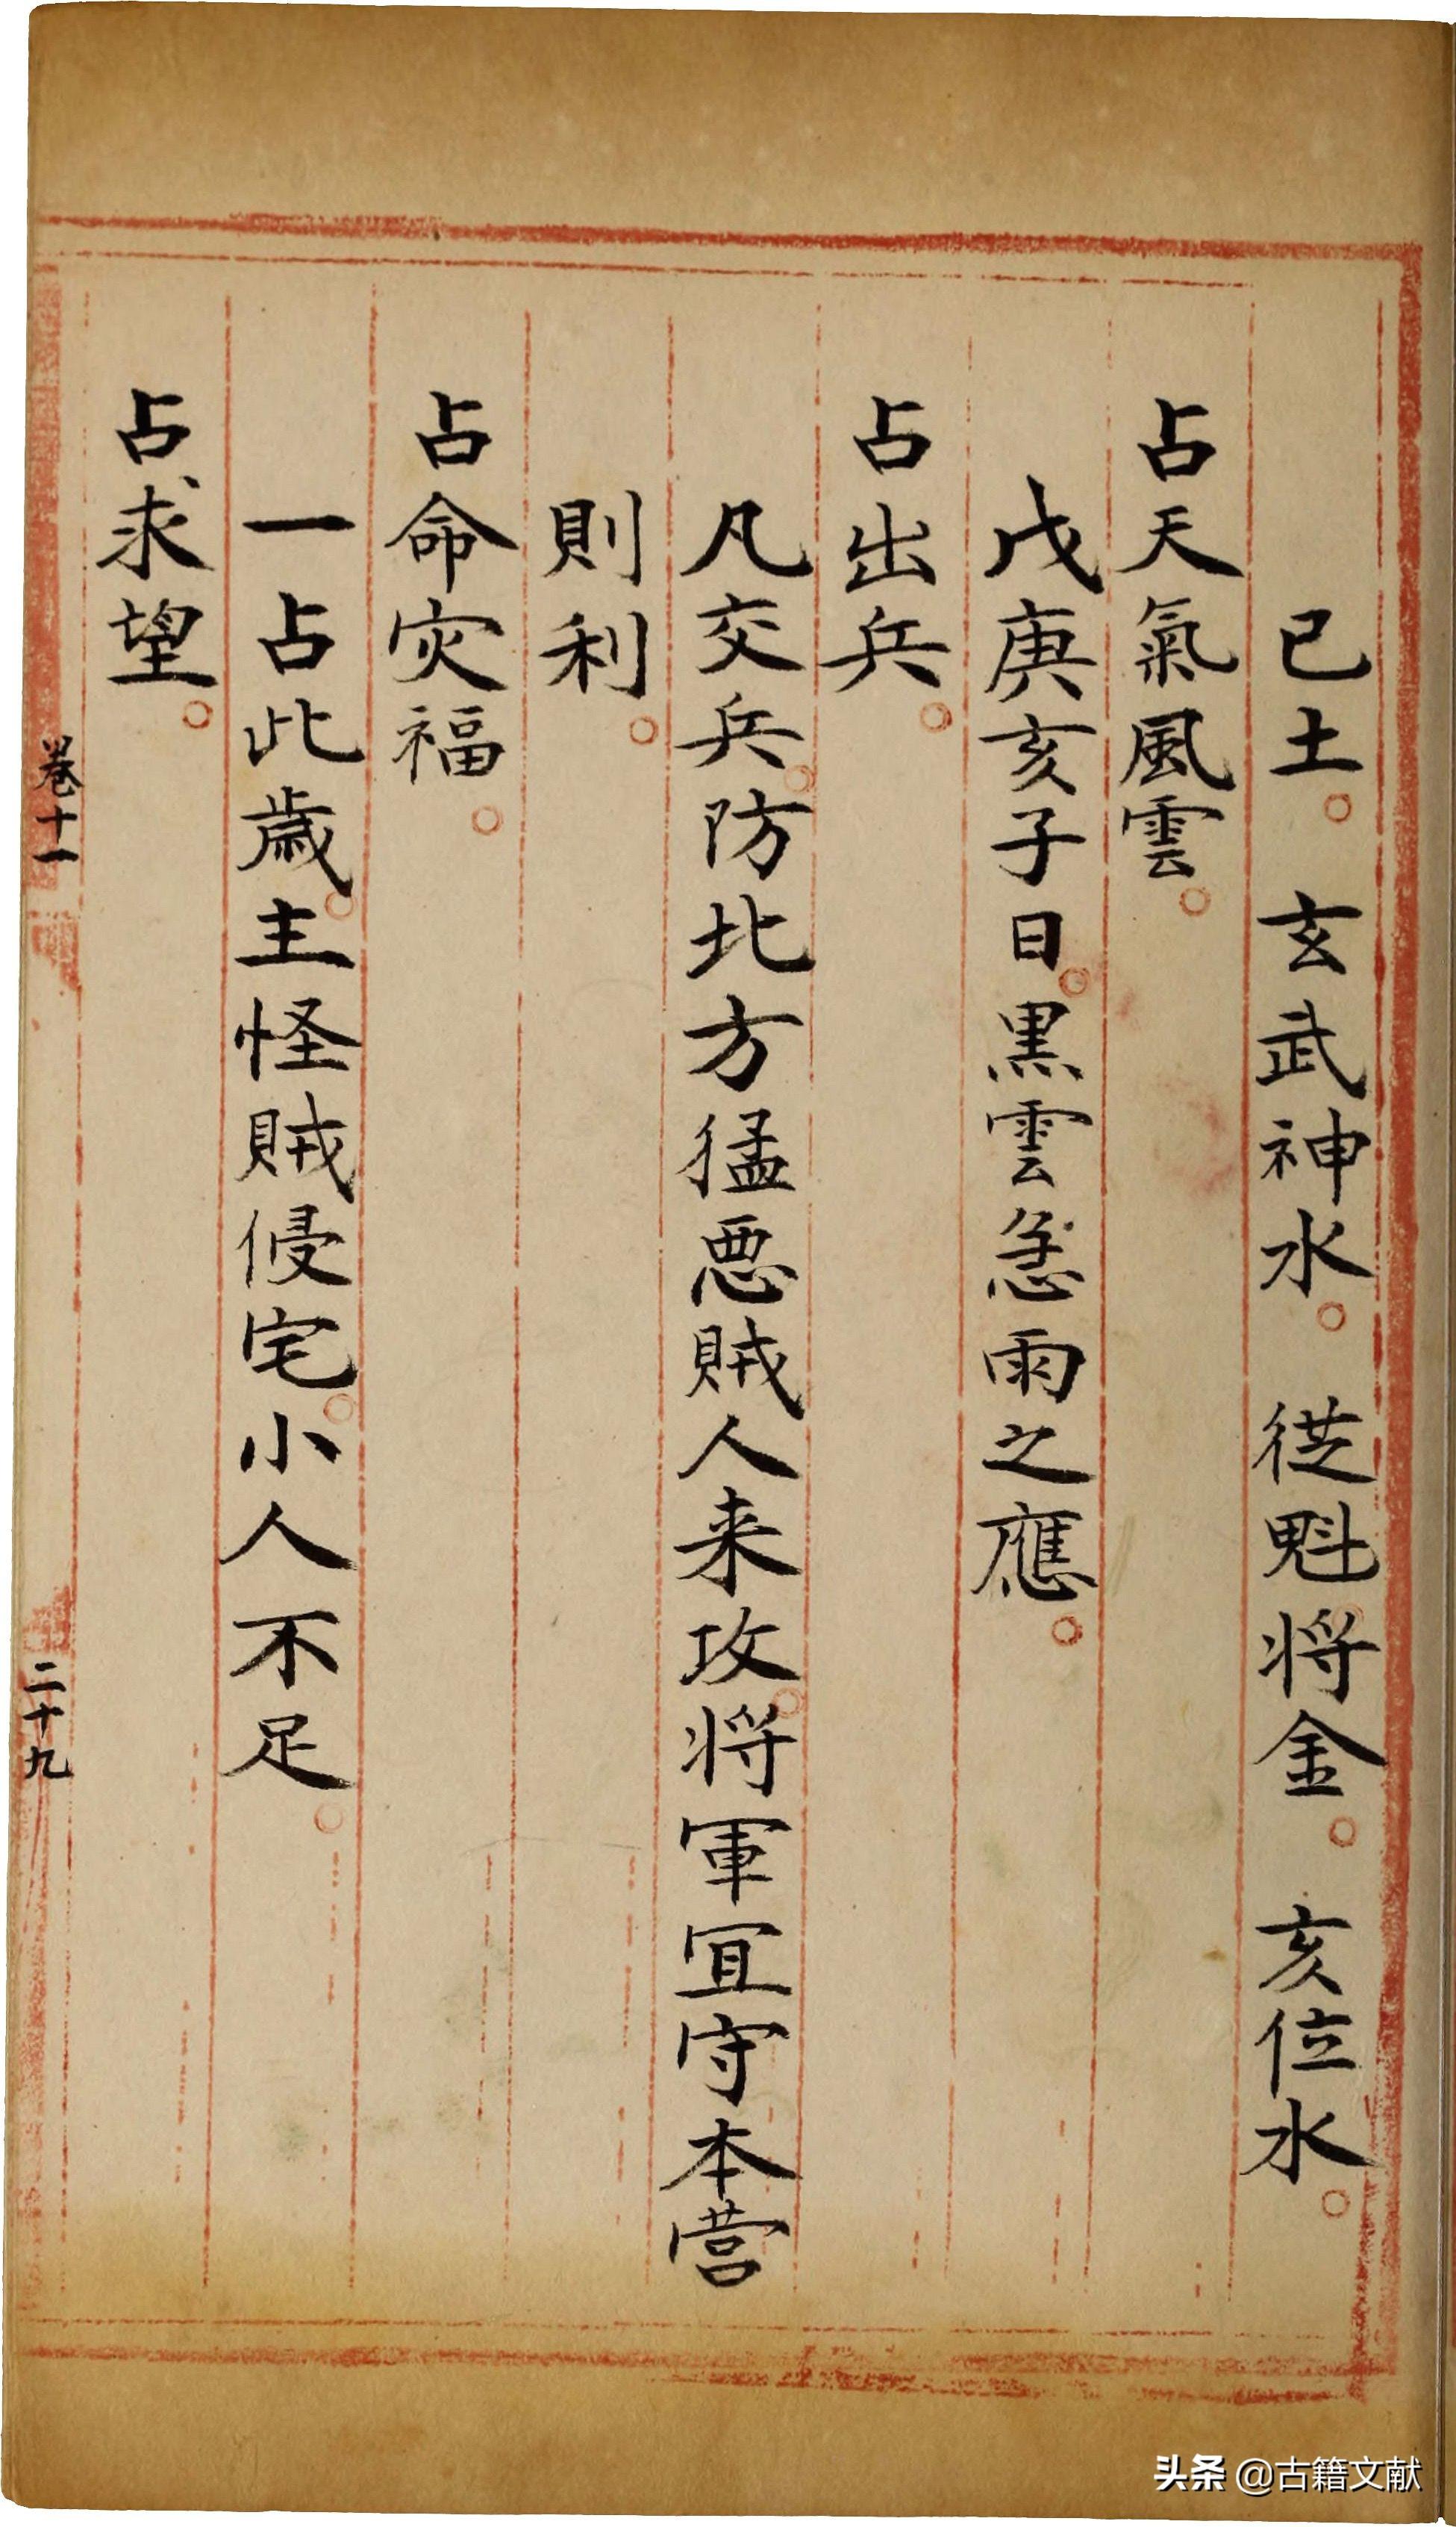 已土。玄武神水。從魁将金。亥位水。
占天氣風雲。
戊庚亥子日。黒雲急雨之應。
占出兵。
凡交兵。防北方猛悪賊人来攻。将軍宜守本营
則利。
占命灾福。
一占此歳。主怪賊侵宅。小人不足。
占求望。
卷十一
二十九
头条 @古籍文献